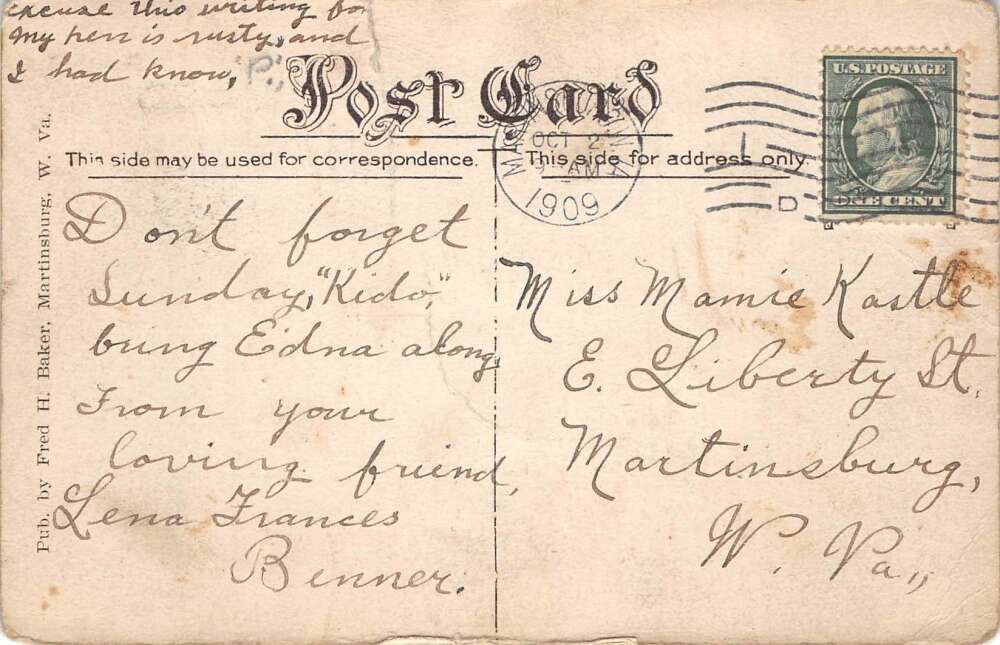 excuse this writing for
my pen is rusty, and
I had know, "P.",
Post Card
This side may be used for correspondence.
This side for address only.
OCT 2
AM
1909
U.S. POSTAGE
ONE CENT
D
Don't forget
Sunday, "Kido,"
bring Edna along.
From your
loving friend,
Lena Frances
Benner.
Miss Mamie Kastle
E. Liberty St.
Martinsburg,
W. Va.,
Pub. by Fred H. Baker, Martinsburg, W. Va.